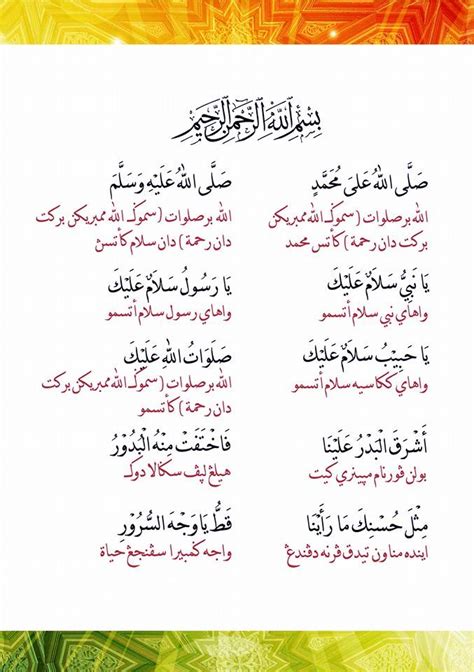 بِسْمِ اللهِ الرَّحْمٰنِ الرَّحِيْمِ
صَلَّى اللهُ عَلىَ مُحَمَّدٍ
الله برصلوات (سموݢـ الله ممبريكن
بركت دان رحمة) كأتس محمد
صَلَّى اللهُ عَلَيْهِ وَسَلَّمَ
الله برصلوات (سموݢـ الله ممبريكن بركت
دان رحمة) دان سلام كأتسڽ
يَا نَبِيُّ سَلَامٌ عَلَيْكَ
واهاي نبي سلام أتسمو
يَا رَسُولُ سَلَامٌ عَلَيْكَ
واهاي رسول سلام أتسمو
يَا حَبِيْبُ سَلَامٌ عَلَيْكَ
واهاي ككاسيه سلام أتسمو
صَلَوَاتُ اللهِ عَلَيْكَ
الله برصلوات (سموݢـ الله ممبريكن بركت
دان رحمة) كأتسمو
أَشْرَقَ الْبَدْرُ عَلَيْنَا
بولن ڤورنام مڽينري كيت
فَاخْتَفَتْ مِنْهُ الْبُدُوْرُ
هيلڠ ليڤ سݢالا دوكـ
مِثْلَ حُسْنِكَ مَا رَأَيْنَا
اينده مناون تيدق ڤرنه دڤندڠ
قَطُّ يَا وَجْهَ السُّرُوْرِ
واجه ݢمبيرا سڤنجڠ حياة